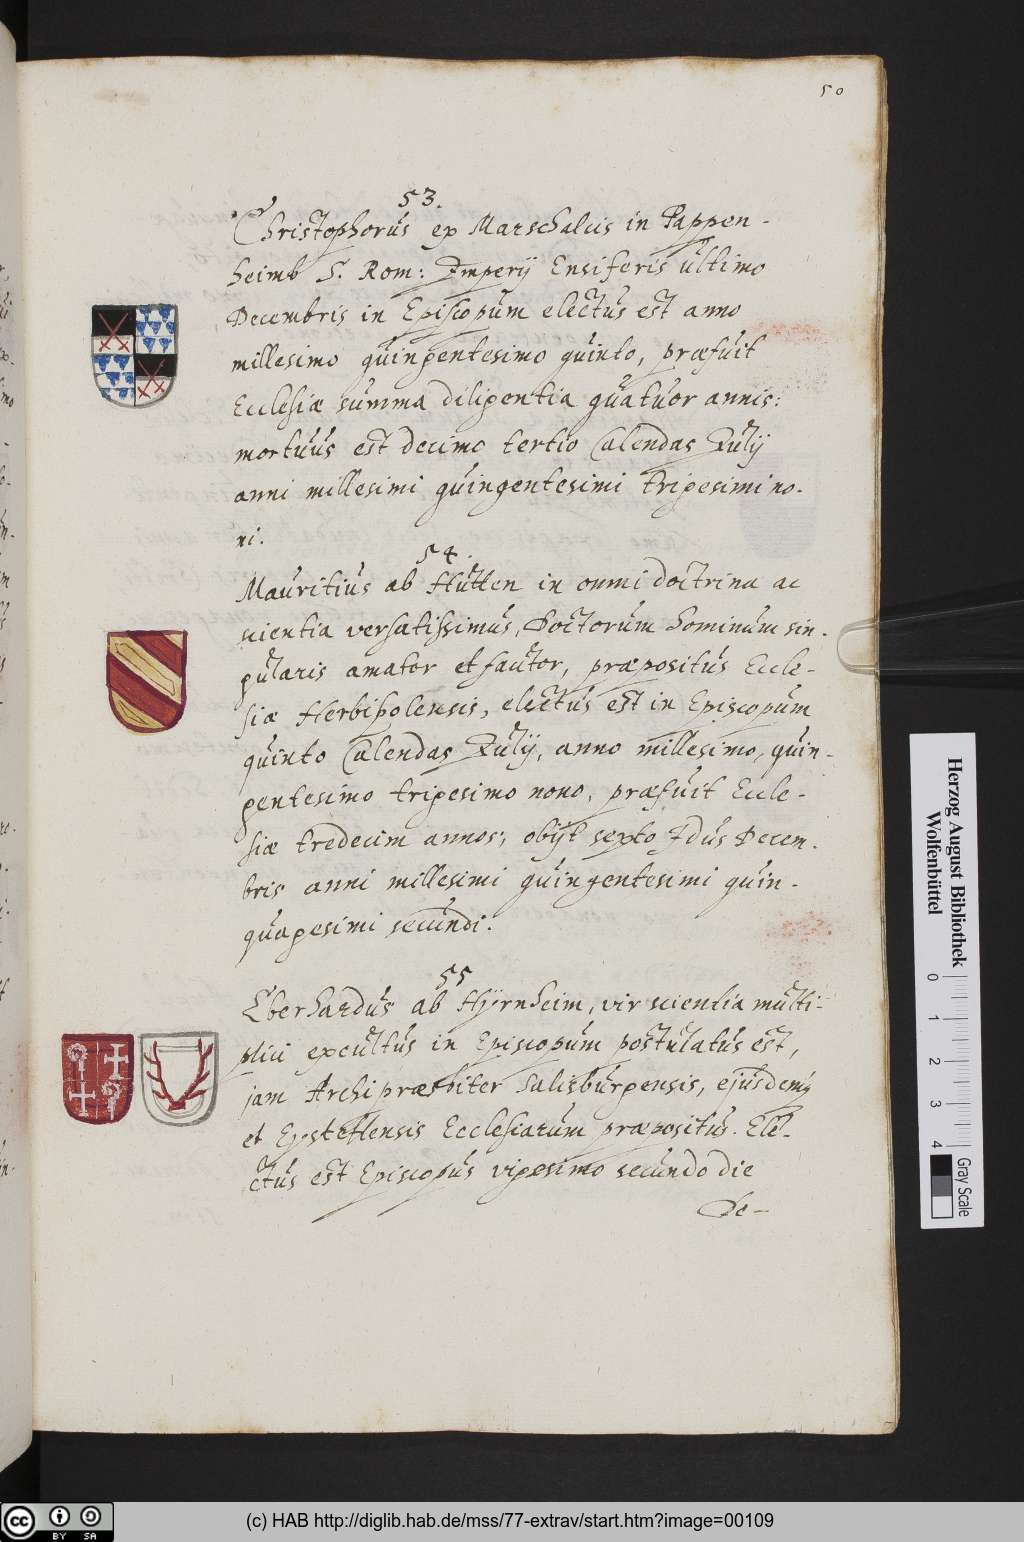 50
53.
Christophorus ex Marschalcis in Pappen-
heimb S. Rom: Imperij Ensiferis ultimo
Decembris in Episcopum electus est anno
millesimo quingentesimo quinto, præfuit
Ecclesiæ summa diligentia quatuor annis:
mortuus est decimo tertio Calendas Julij
anni millesimi quingentesimi trigesimi no-
ni.
54.
Mauritius ab Hutten in omni doctrina ac
scientia versatissimus, Doctorum hominum sin-
gularis amator et fautor, præpositus Eccle-
siæ Herbipolensis, electus est in Episcopum
quinto Calendas Julij, anno millesimo, quin-
gentesimo trigesimo nono, præfuit Eccle-
siæ tredecim annos, obijt sexto Idus Decem-
bris anni millesimi quingentesimi quin-
quagesimi secundi.
55
Eberhardus ab Hÿrnheim, vir scientia multi-
plici excultus in Episcopum postulatus est,
jam Archipræsbiter Salisburgensis, ejusdemq́
et Eystettensis Ecclesiarum præpositus. Ele-
ctus est Episcopus vigesimo secundo die
De-
Herzog August Bibliothek
Wolfenbüttel
0 1 2 3 4
Gray Scale
cc BY SA
(c) HAB http://diglib.hab.de/mss/77-extrav/start.htm?image=00109